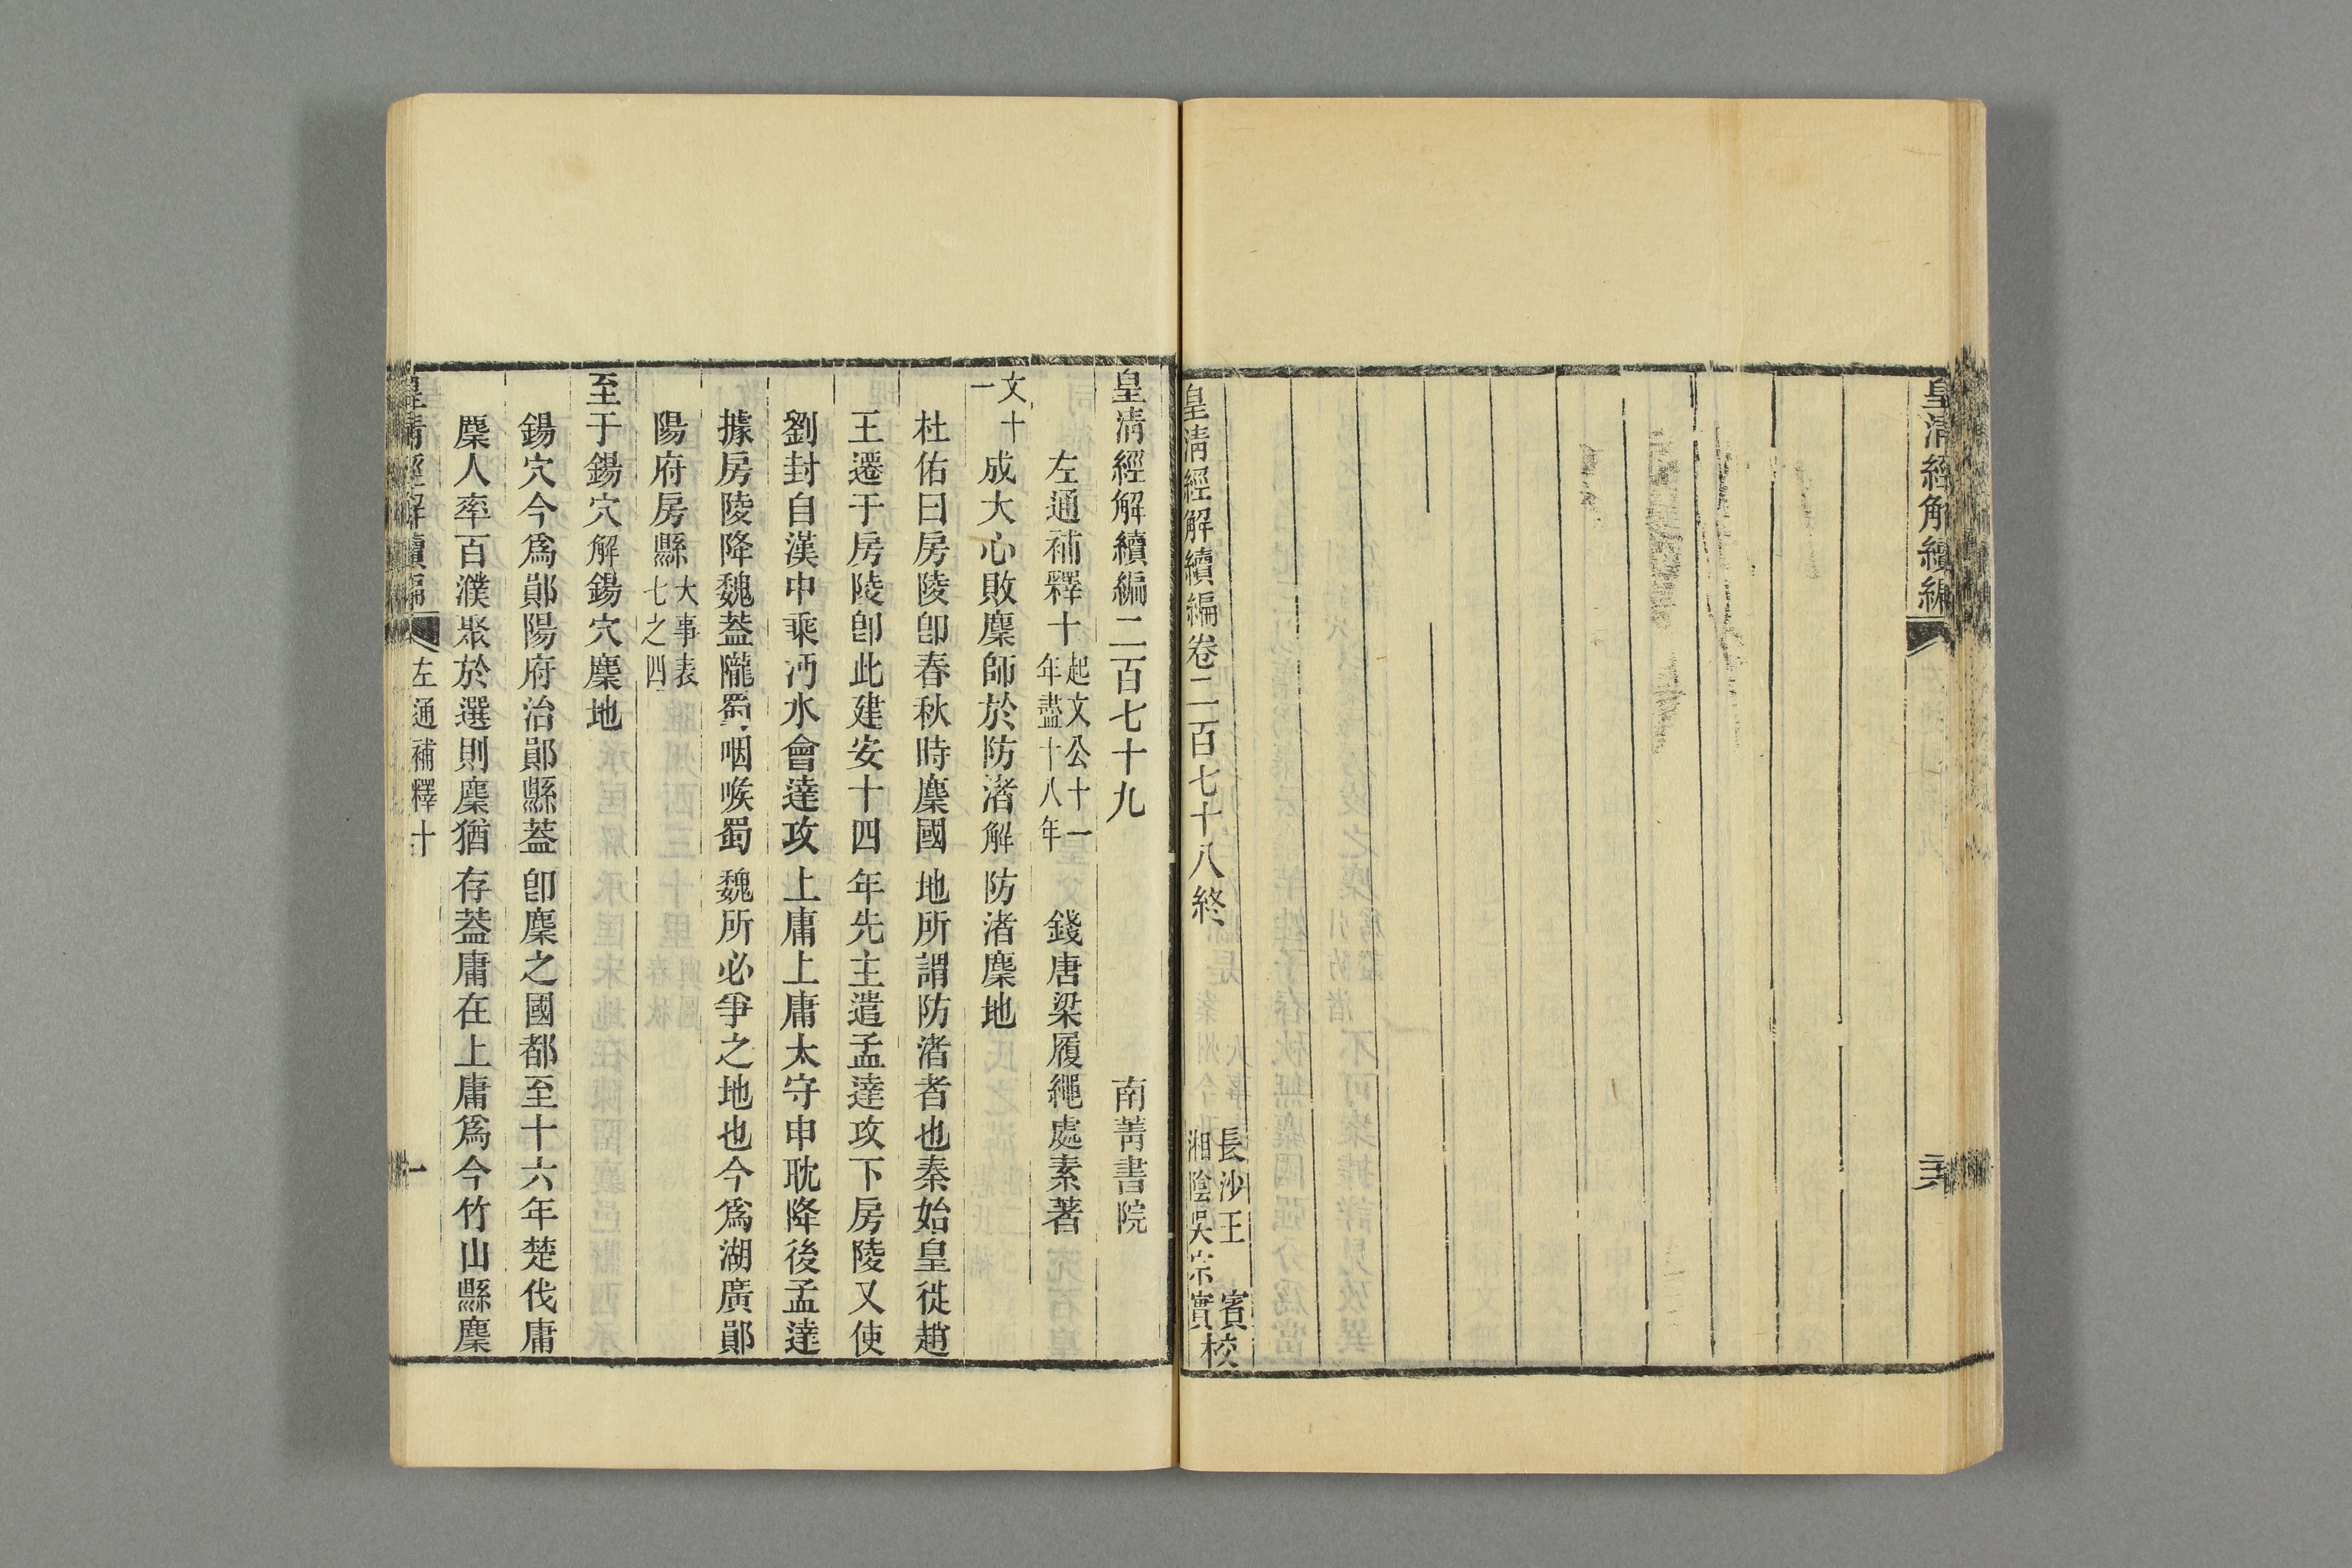 皇清經解續編
三六
皇清經解續編卷二百七十八終
長沙王賓
湘陰吳宗實
校
皇清經解續編二百七十九
南菁書院
左通補釋十
起文公十一
年盡十八年
錢唐梁履繩處素著
文十
一
成大心敗麇師於防渚解防渚麇地
杜佑曰房陵卽春秋時麇國地所謂防渚者也秦始皇徙趙
王遷于房陵卽此建安十四年先主遣孟達攻下房陵又使
劉封自漢中乘沔水會達攻上庸上庸太守申耽降後孟達
據房陵降魏蓋隴蜀咽喉蜀魏所必爭之地也今爲湖廣鄖
陽府房縣
大事表
七之四
至于鍚穴解鍚穴麇地
鍚穴今爲鄖陽府治鄖縣蓋卽麇之國都至十六年楚伐庸
麇人率百濮聚於選則麇猶存蓋庸在上庸爲今竹山縣麇
皇清經解續編
左通補釋十
一